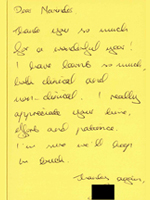 Dear
Thank you so much
for a wonderful year!
I have learnt so much,
both clinical and
non-clinical. I really
appreciate your time,
effort and patience.
I'm sure we'll keep
in touch.
Thanks again,